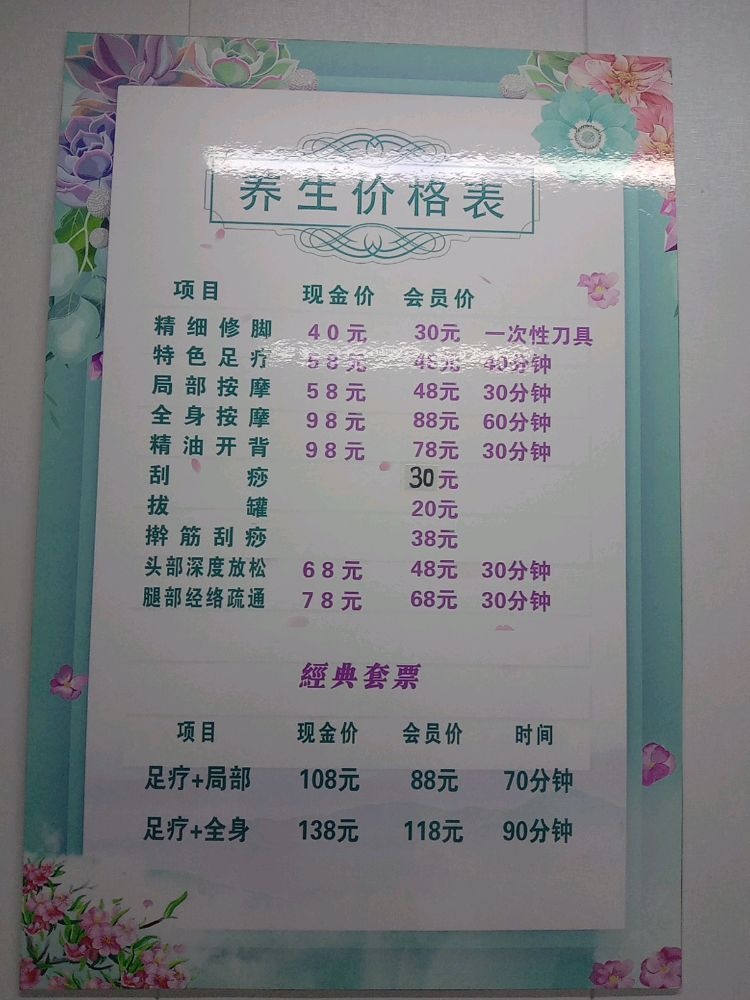 养生价格表
项目 现金价 会员价
精细修脚 40元 30元 一次性刀具
特色足疗 58元 48元 40分钟
局部按摩 58元 48元 30分钟
全身按摩 98元 88元 60分钟
精油开背 98元 78元 30分钟
刮痧 30元
拔罐 20元
擀筋刮痧 38元
头部深度放松 68元 48元 30分钟
腿部经络疏通 78元 68元 30分钟
經典套票
项目 现金价 会员价 时间
足疗+局部 108元 88元 70分钟
足疗+全身 138元 118元 90分钟